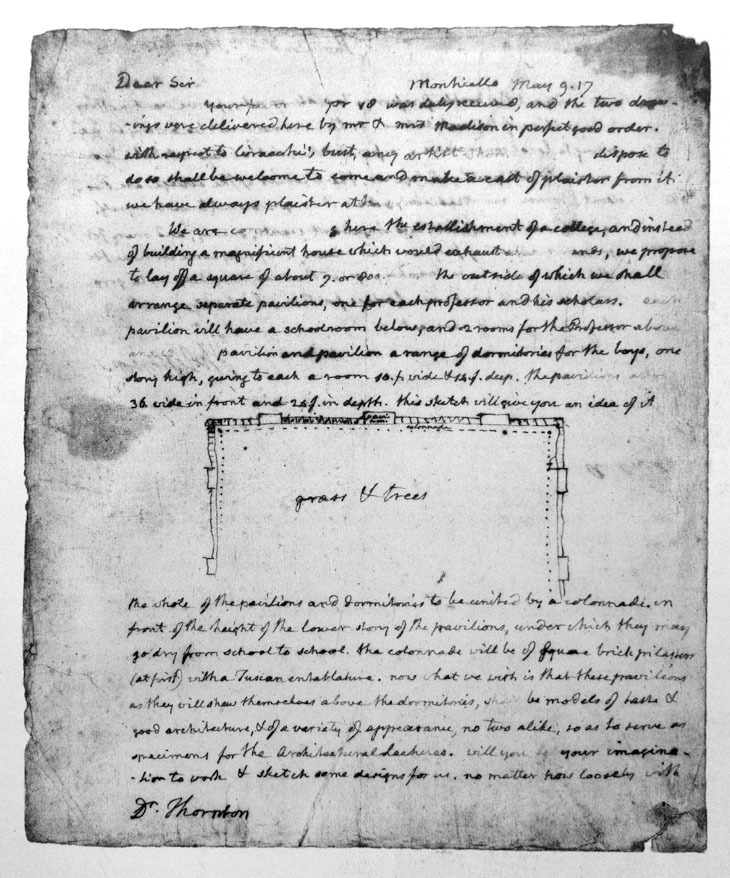 Dear Sir Monticello May 9. 17
Your 18 was duly received, and the two draw-
-ings were delivered here by mr & mrs Madison in perfect good order.
with respect to Ceracchi's bust, any artist dispose to
do so shall be welcome to come and make a cast of plaister from it.
we have always plaister at
We are here the establishment of a college, and instead
of building a magnificent house which would exhaust , we propose
to lay off a square of about 7. or 800 the outside of which we shall
arrange separate pavilions, one for each professor and his scholars. each
pavilion will have a schoolroom below, and 2 rooms for the Professor above
and pavilion and pavilion a range of dormitories for the boys, one
story high, giving to each a room 10. f. wide & 14. f. deep. the pavilions
36. wide in front and 24. f. in depth. this sketch will give you an idea of it
colonnade
grass & trees
the whole of the pavilions and dormitories to be united by a colonnade in
front of the height of the lower story of the pavilions, under which they may
go dry from school to school. the colonnade will be of square brick pilasters
(at first) with a Tuscan entablature. now what we wish is that these pavilions
as they will shew themselves above the dormitories, be models of taste &
good architecture, & of a variety of appearance, no two alike, so as to serve as
specimens for the Architectural lectures. will you your imagina-
-tion to work & sketch some designs for us. no matter how loosely with
Dr. Thornton